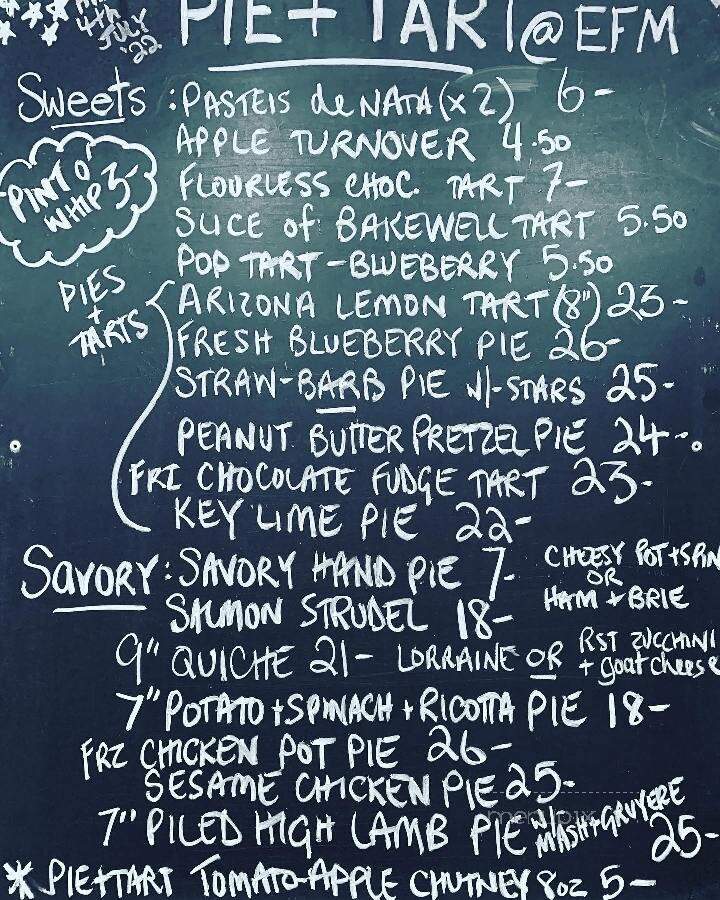 4TH JULY '22
PIE + TART @ EFM
Sweets : PASTEIS de NATA (x2) 6-
APPLE TURNOVER 4.50
PINT O' WHIP 3-
FLOURLESS CHOC. TART 7-
SLICE of BAKEWELL TART 5.50
POP TART - BLUEBERRY 5.50
PIES + TARTS
ARIZONA LEMON TART (8") 23-
FRESH BLUEBERRY PIE 26-
STRAW-BARB PIE W/-STARS 25-
PEANUT BUTTER PRETZEL PIE 24-
FRZ CHOCOLATE FUDGE TART 23-
KEY LIME PIE 22-
SAVORY : SAVORY HAND PIE 7- CHEESY POT + SPIN
OR
HAM + BRIE
SALMON STRUDEL 18-
9" QUICHE 21- LORRAINE OR RST ZUCCHINI
+ goat cheese
7" POTATO + SPINACH + RICOTTA PIE 18-
FRZ CHICKEN POT PIE 26-
SESAME CHICKEN PIE 25-
7" PILED HIGH LAMB PIE W/- MASH + GRUYERE 25-
* PIE + TART TOMATO-APPLE CHUTNEY 8oz 5-